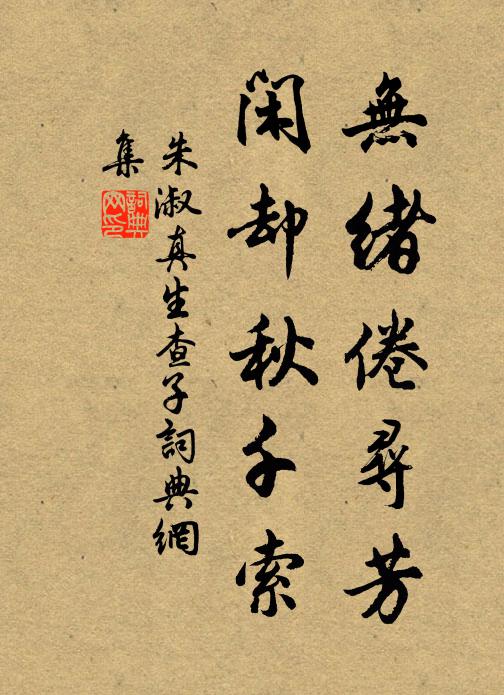 無緒倦尋芳
閑却秋千索
朱淑真生查子詞典網
集
詞典網印